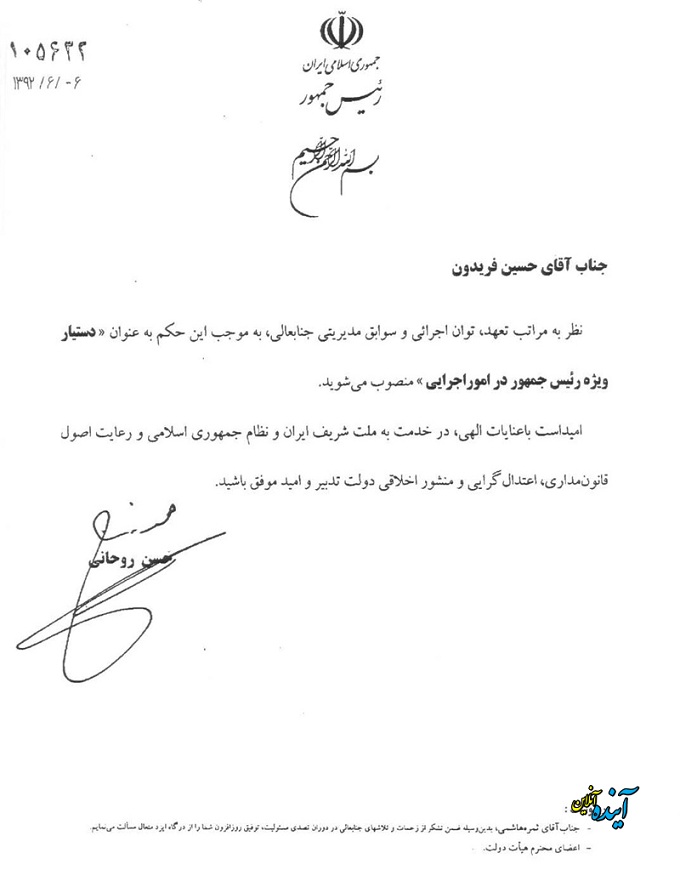 ۱۰۵۶۳۲
۱۳۹۲/۶/-۶
جمهوری اسلامی ایران
رئیس جمهور
بسم الله الرحمن الرحیم
جناب آقای حسین فریدون
نظر به مراتب تعهد، توان اجرائی و سوابق مدیریتی جنابعالی، به موجب این حکم به عنوان «دستیار
ویژه رئیس جمهور در امور اجرایی» منصوب می‌شوید.
امیداست باعنایات الهی، در خدمت به ملت شریف ایران و نظام جمهوری اسلامی و رعایت اصول
قانون‌مداری، اعتدال گرایی و منشور اخلاقی دولت تدبیر و امید موفق باشید.
حسن روحانی
آینده آنلاین
:
- جناب آقای ثمره‌هاشمی، بدین‌وسیله ضمن تشکر از زحمات و تلاشهای جنابعالی در دوران تصدی مسئولیت، توفیق روزافزون شما را از درگاه ایزد متعال مسألت می‌نمایم.
- اعضای محترم هیأت دولت.